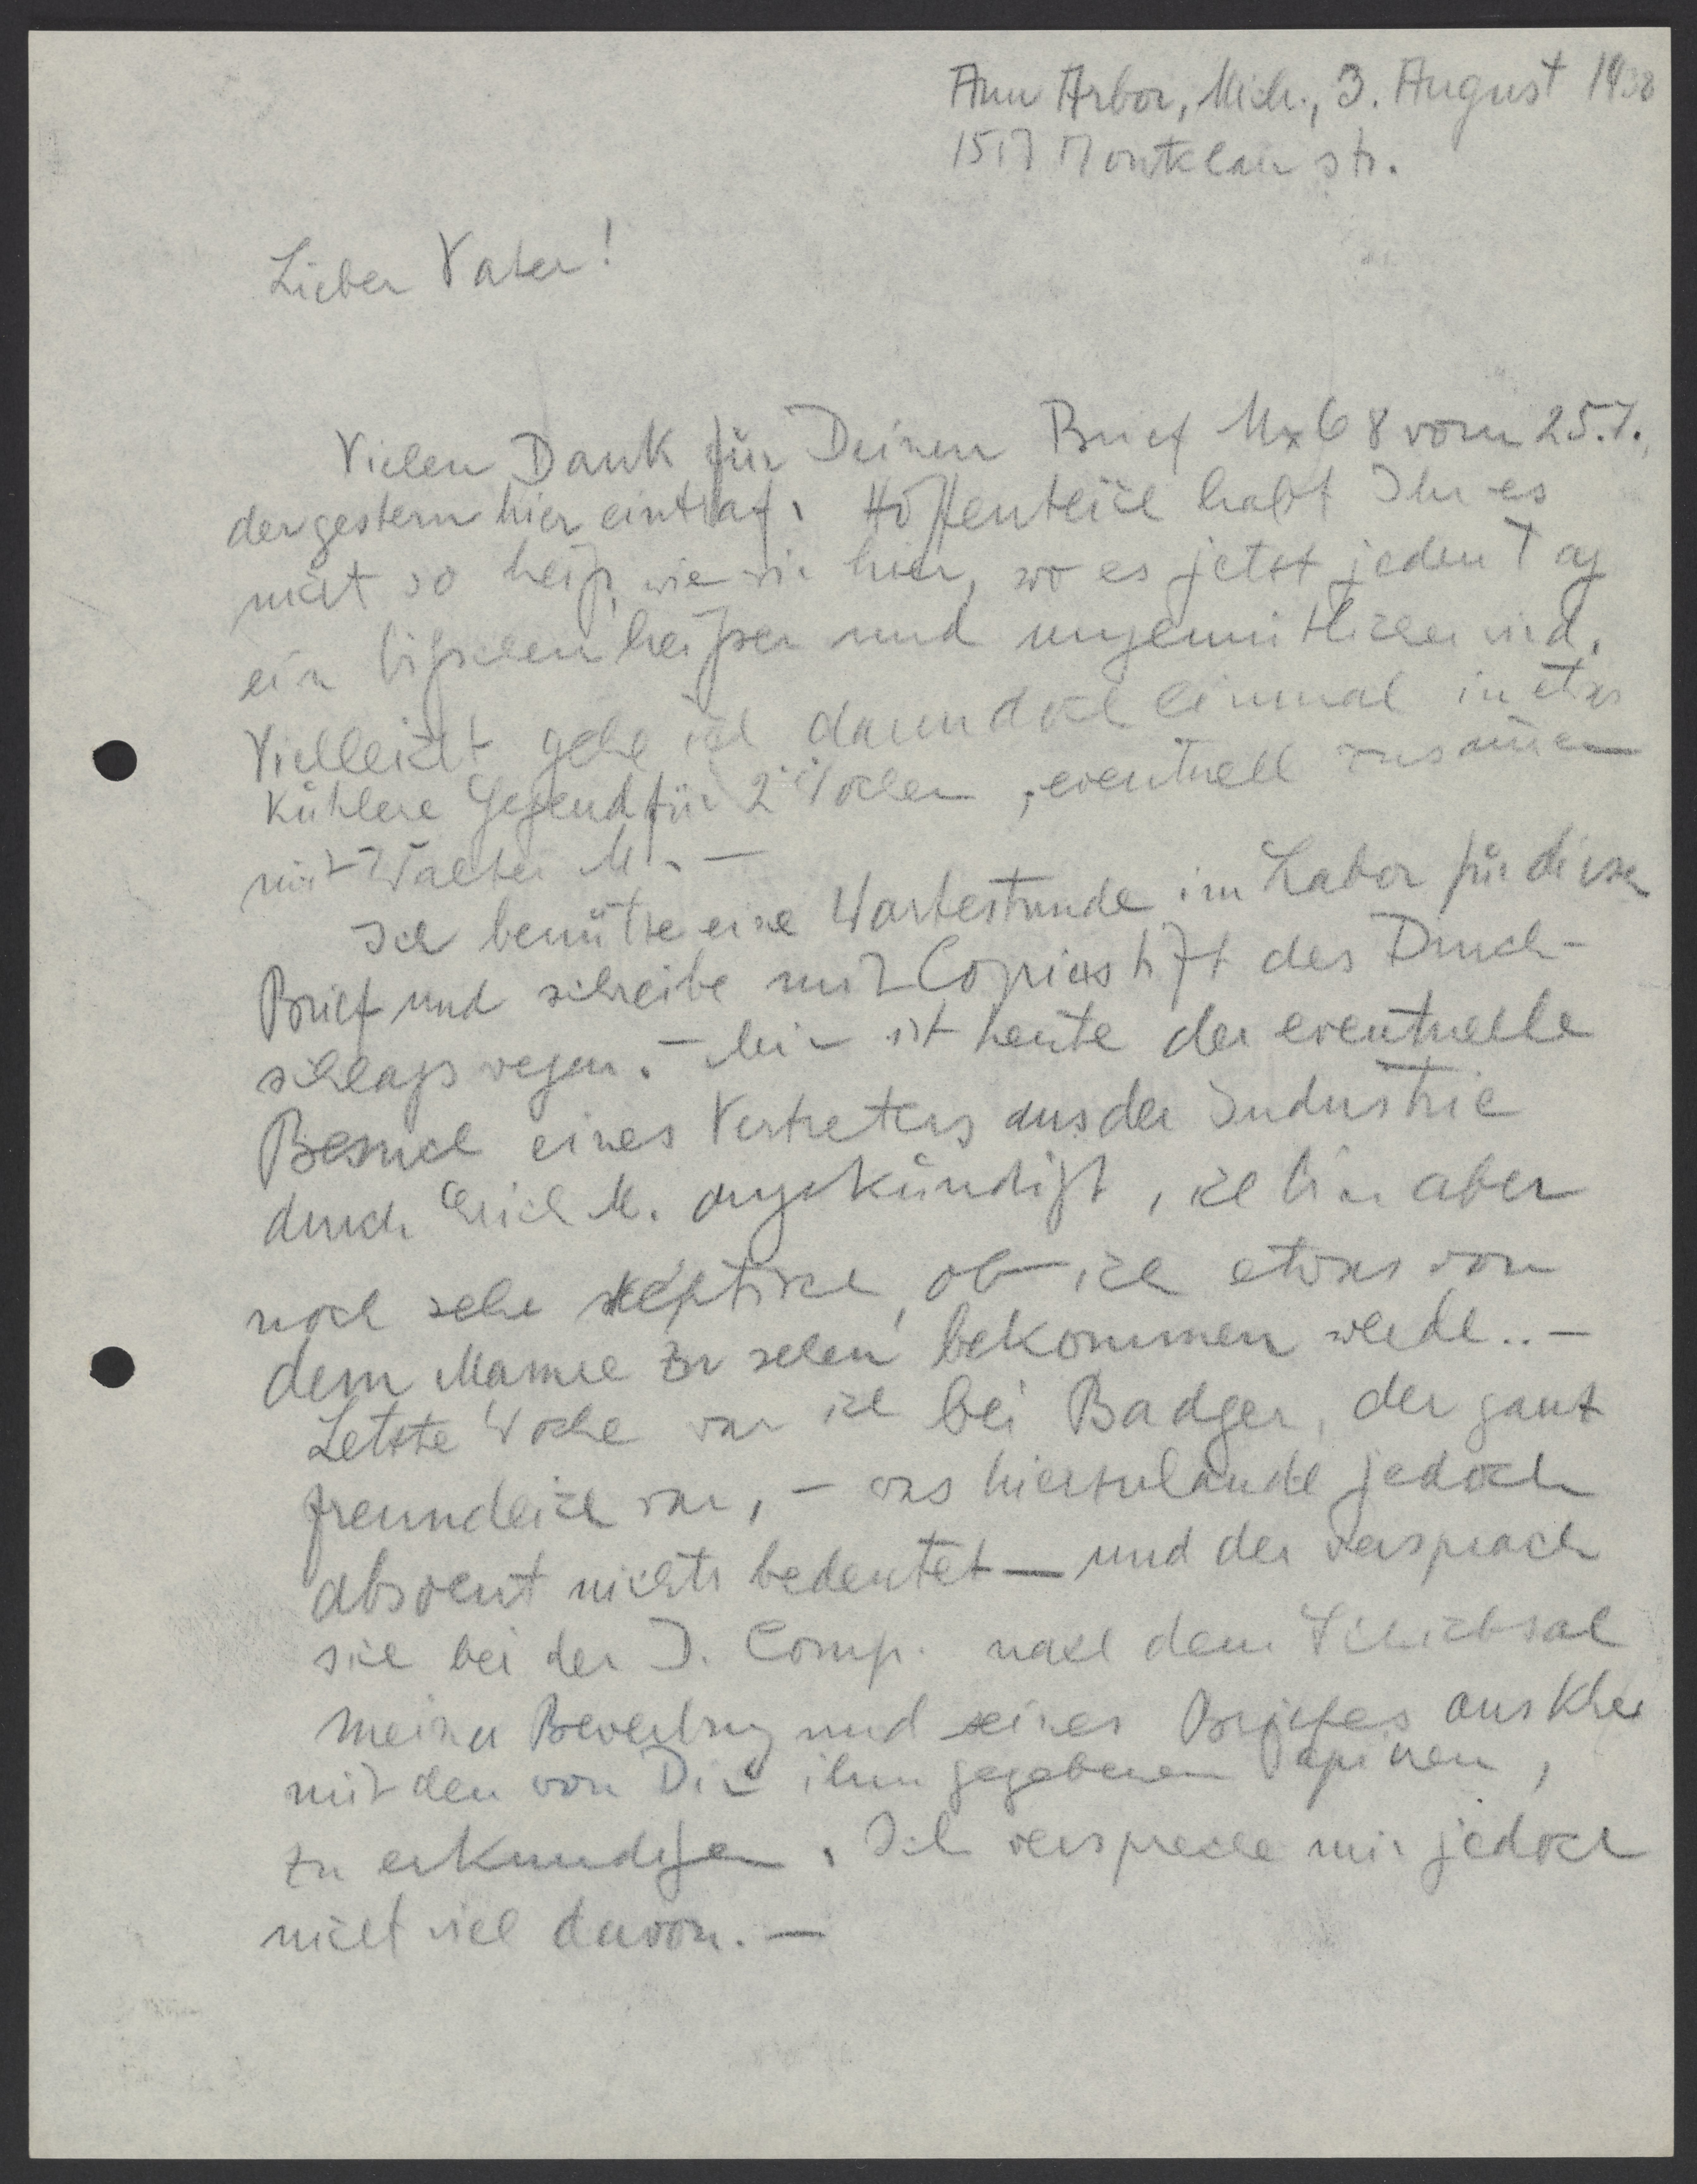 Ann Arbor, Mich., 3. August 1938
1517 Montclair str.
Lieber Vater!
Vielen Dank für Deinen Brief Mx68 vom 25.7.,
der gestern hier eintraf. Hoffentlich habt Ihr es
nicht so heiß, wie wir hier, wo es jetzt jeden Tag
ein bißchen heißer und ungemütlicher wird.
Vielleicht gehe ich dann doch einmal in etwas
kühlere Gegend für 2 Wochen, eventuell zusammen
mit Walter M. —
Ich benütze eine Wartestunde im Labor für diesen
Brief und schreibe mit Copierstift des Durch-
schlags wegen. — Mir ist heute der eventuelle
Besuch eines Vertreters aus der Industrie
durch Erich M. angekündigt, ich bin aber
noch sehr skeptisch, ob ich etwas von
dem Manne zu sehen bekommen werde.. —
Letzte Woche war ich bei Badger, der ganz
freundlich war, — was hierzulande jedoch
absolut nichts bedeutet — und der versprach
sich bei der D. Comp. nach dem Schicksal
meiner Bewerbung und seines Briefes aus
mit den von Dir ihm gegebenen Papieren,
zu erkundigen. Ich verspreche mir jedoch
nicht viel davon. —